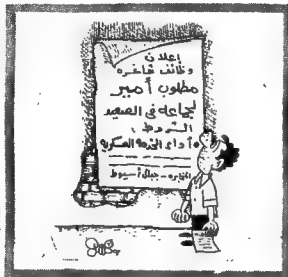 إعلان
وظائف شاغره
مطلوب أمير
لجماعه فى الصعيد
الشروط :
وأداء الخدمة العسكرية
المخابره - جبال أسيوط